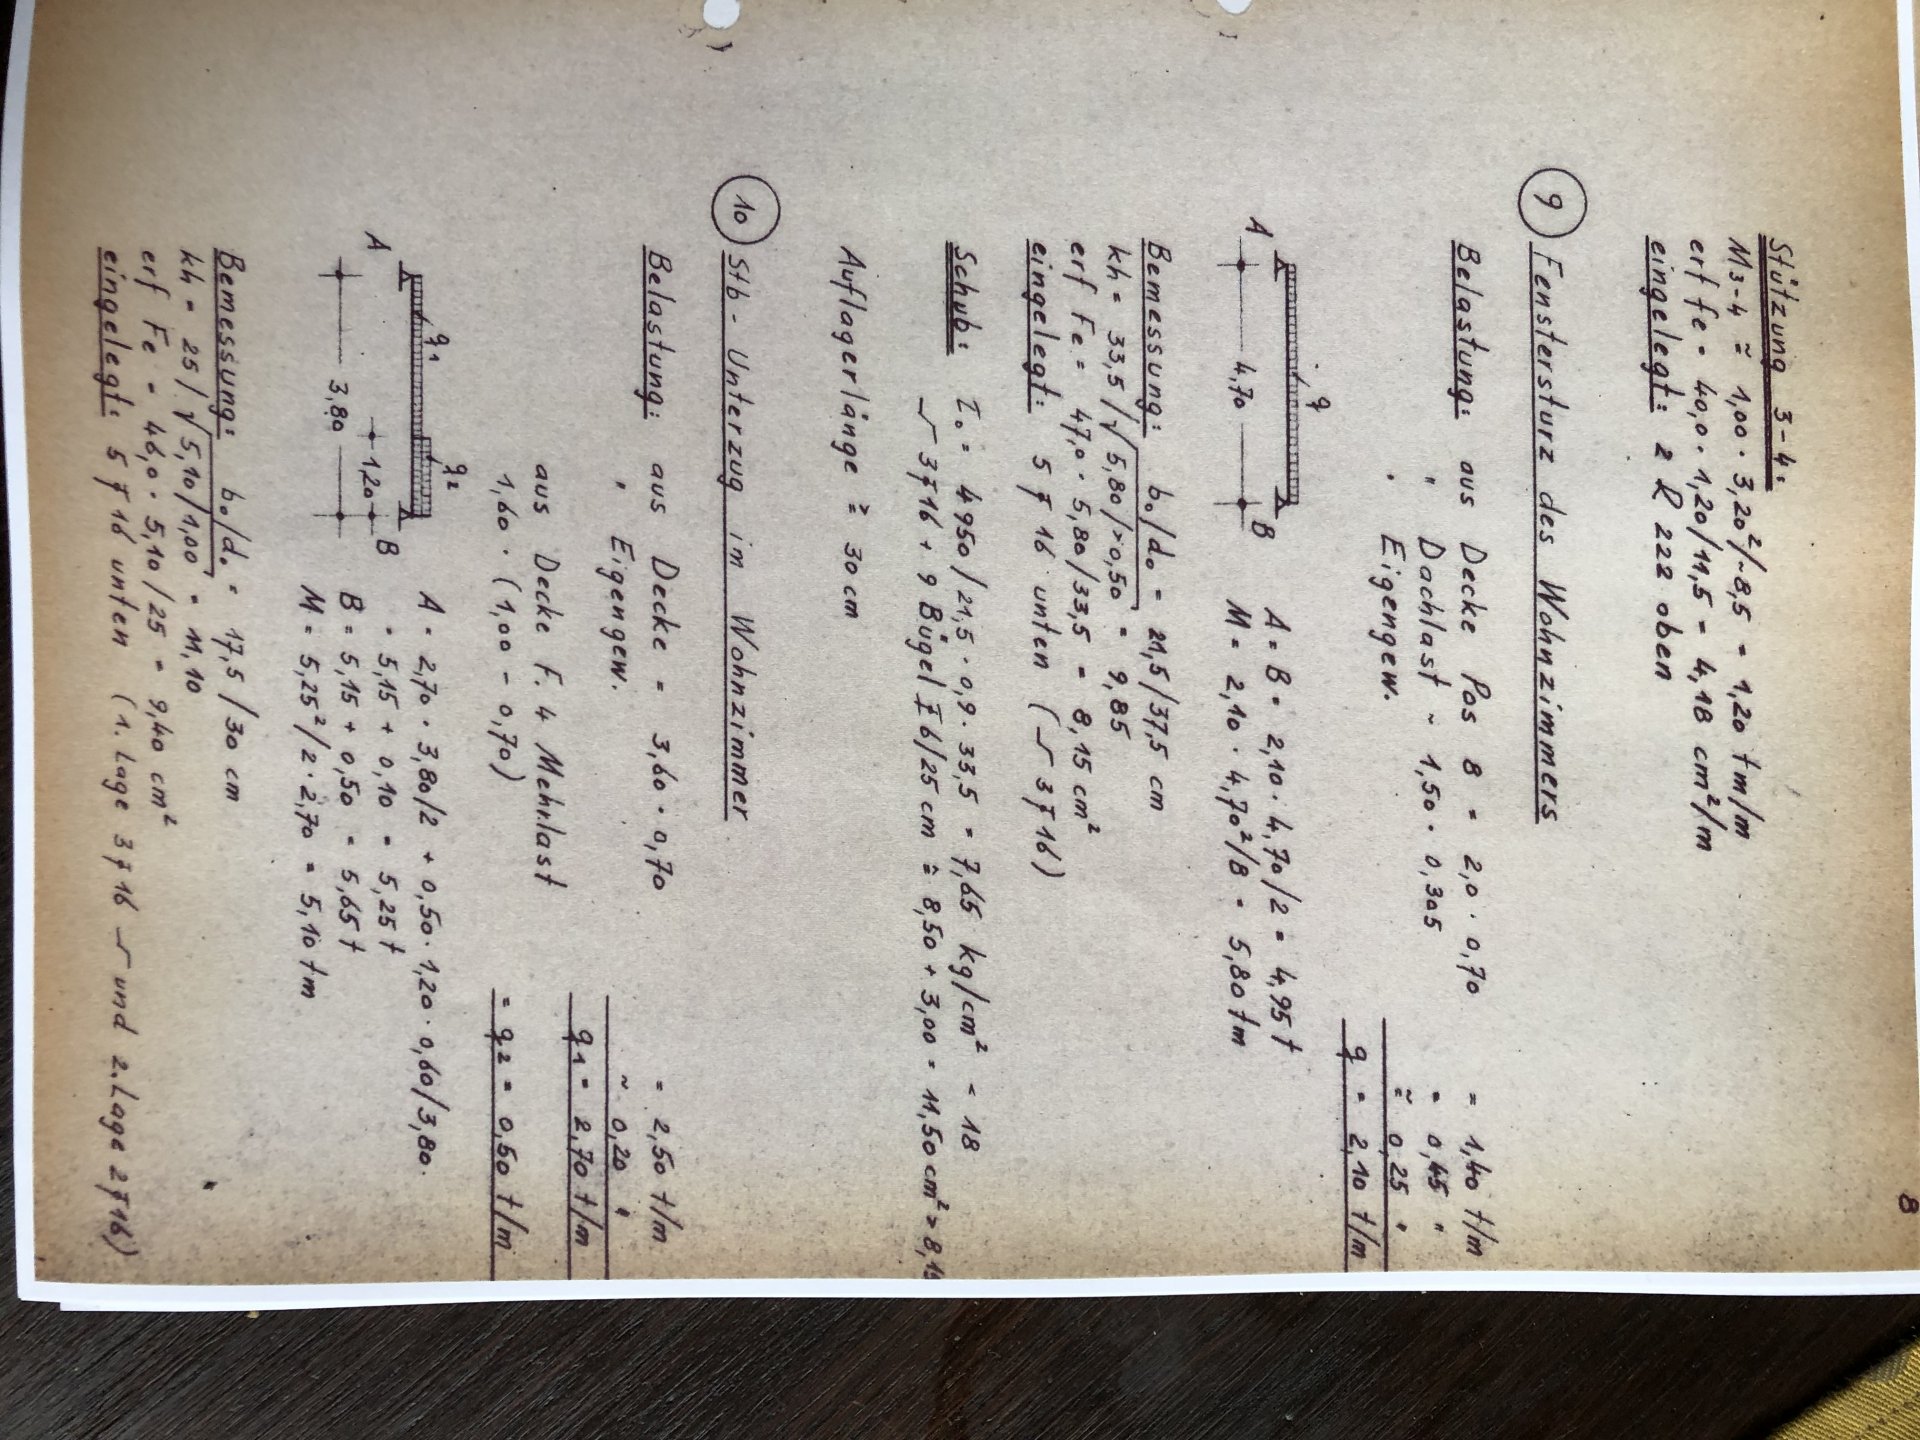 8
Stützung 3-4:
M3-4 ≅ 1,00 · 3,20²/-8,5 = 1,20 tm/m
erf fe = 40,0 · 1,20/11,5 = 4,18 cm²/m
eingelegt: 2 R 222 oben
9 Fenstersturz des Wohnzimmers
Belastung: aus Decke Pos 8 = 2,0 · 0,70 = 1,40 t/m
" Dachlast ~ 1,50 · 0,305 = 0,45 "
" Eigengew. ≅ 0,25 "
q = 2,10 t/m
q
A B
4,70
A = B = 2,10 · 4,70/2 = 4,95 t
M = 2,10 · 4,70²/8 = 5,80 tm
Bemessung: b₀/d₀ = 21,5/37,5 cm
kh = 33,5/√5,80/>0,50 = 9,85
erf Fe = 47,0 · 5,80/33,5 = 8,15 cm²
eingelegt: 5 Ŧ 16 unten ( 3 Ŧ 16 )
Schub: τ₀ = 4950/21,5 · 0,9 · 33,5 = 7,65 kg/cm² < 18
3Ŧ16 + 9 Bügel Ŧ6/25 cm ≅ 8,50 + 3,00 = 11,50 cm² > 8,15
Auflagerlänge ≅ 30 cm
10 Stb-Unterzug im Wohnzimmer
Belastung: aus Decke = 3,60 · 0,70 = 2,50 t/m
" Eigengew. ~ 0,20 "
q1 = 2,70 t/m
aus Decke F. 4 Mehrlast
1,60 · (1,00 - 0,70) = q2 = 0,50 t/m
q1 q2
A B
1,20
3,80
A = 2,70 · 3,80/2 + 0,50 · 1,20 · 0,60/3,80
= 5,15 + 0,10 = 5,25 t
B = 5,15 + 0,50 = 5,65 t
M = 5,25²/2 · 2,70 = 5,10 tm
Bemessung: b₀/d₀ = 17,5/30 cm
kh = 25/√5,10/1,00 = 11,10
erf Fe = 46,0 · 5,10/25 = 9,40 cm²
eingelegt: 5 Ŧ 16 unten (1. Lage 3 Ŧ 16 und 2. Lage 2 Ŧ 16)